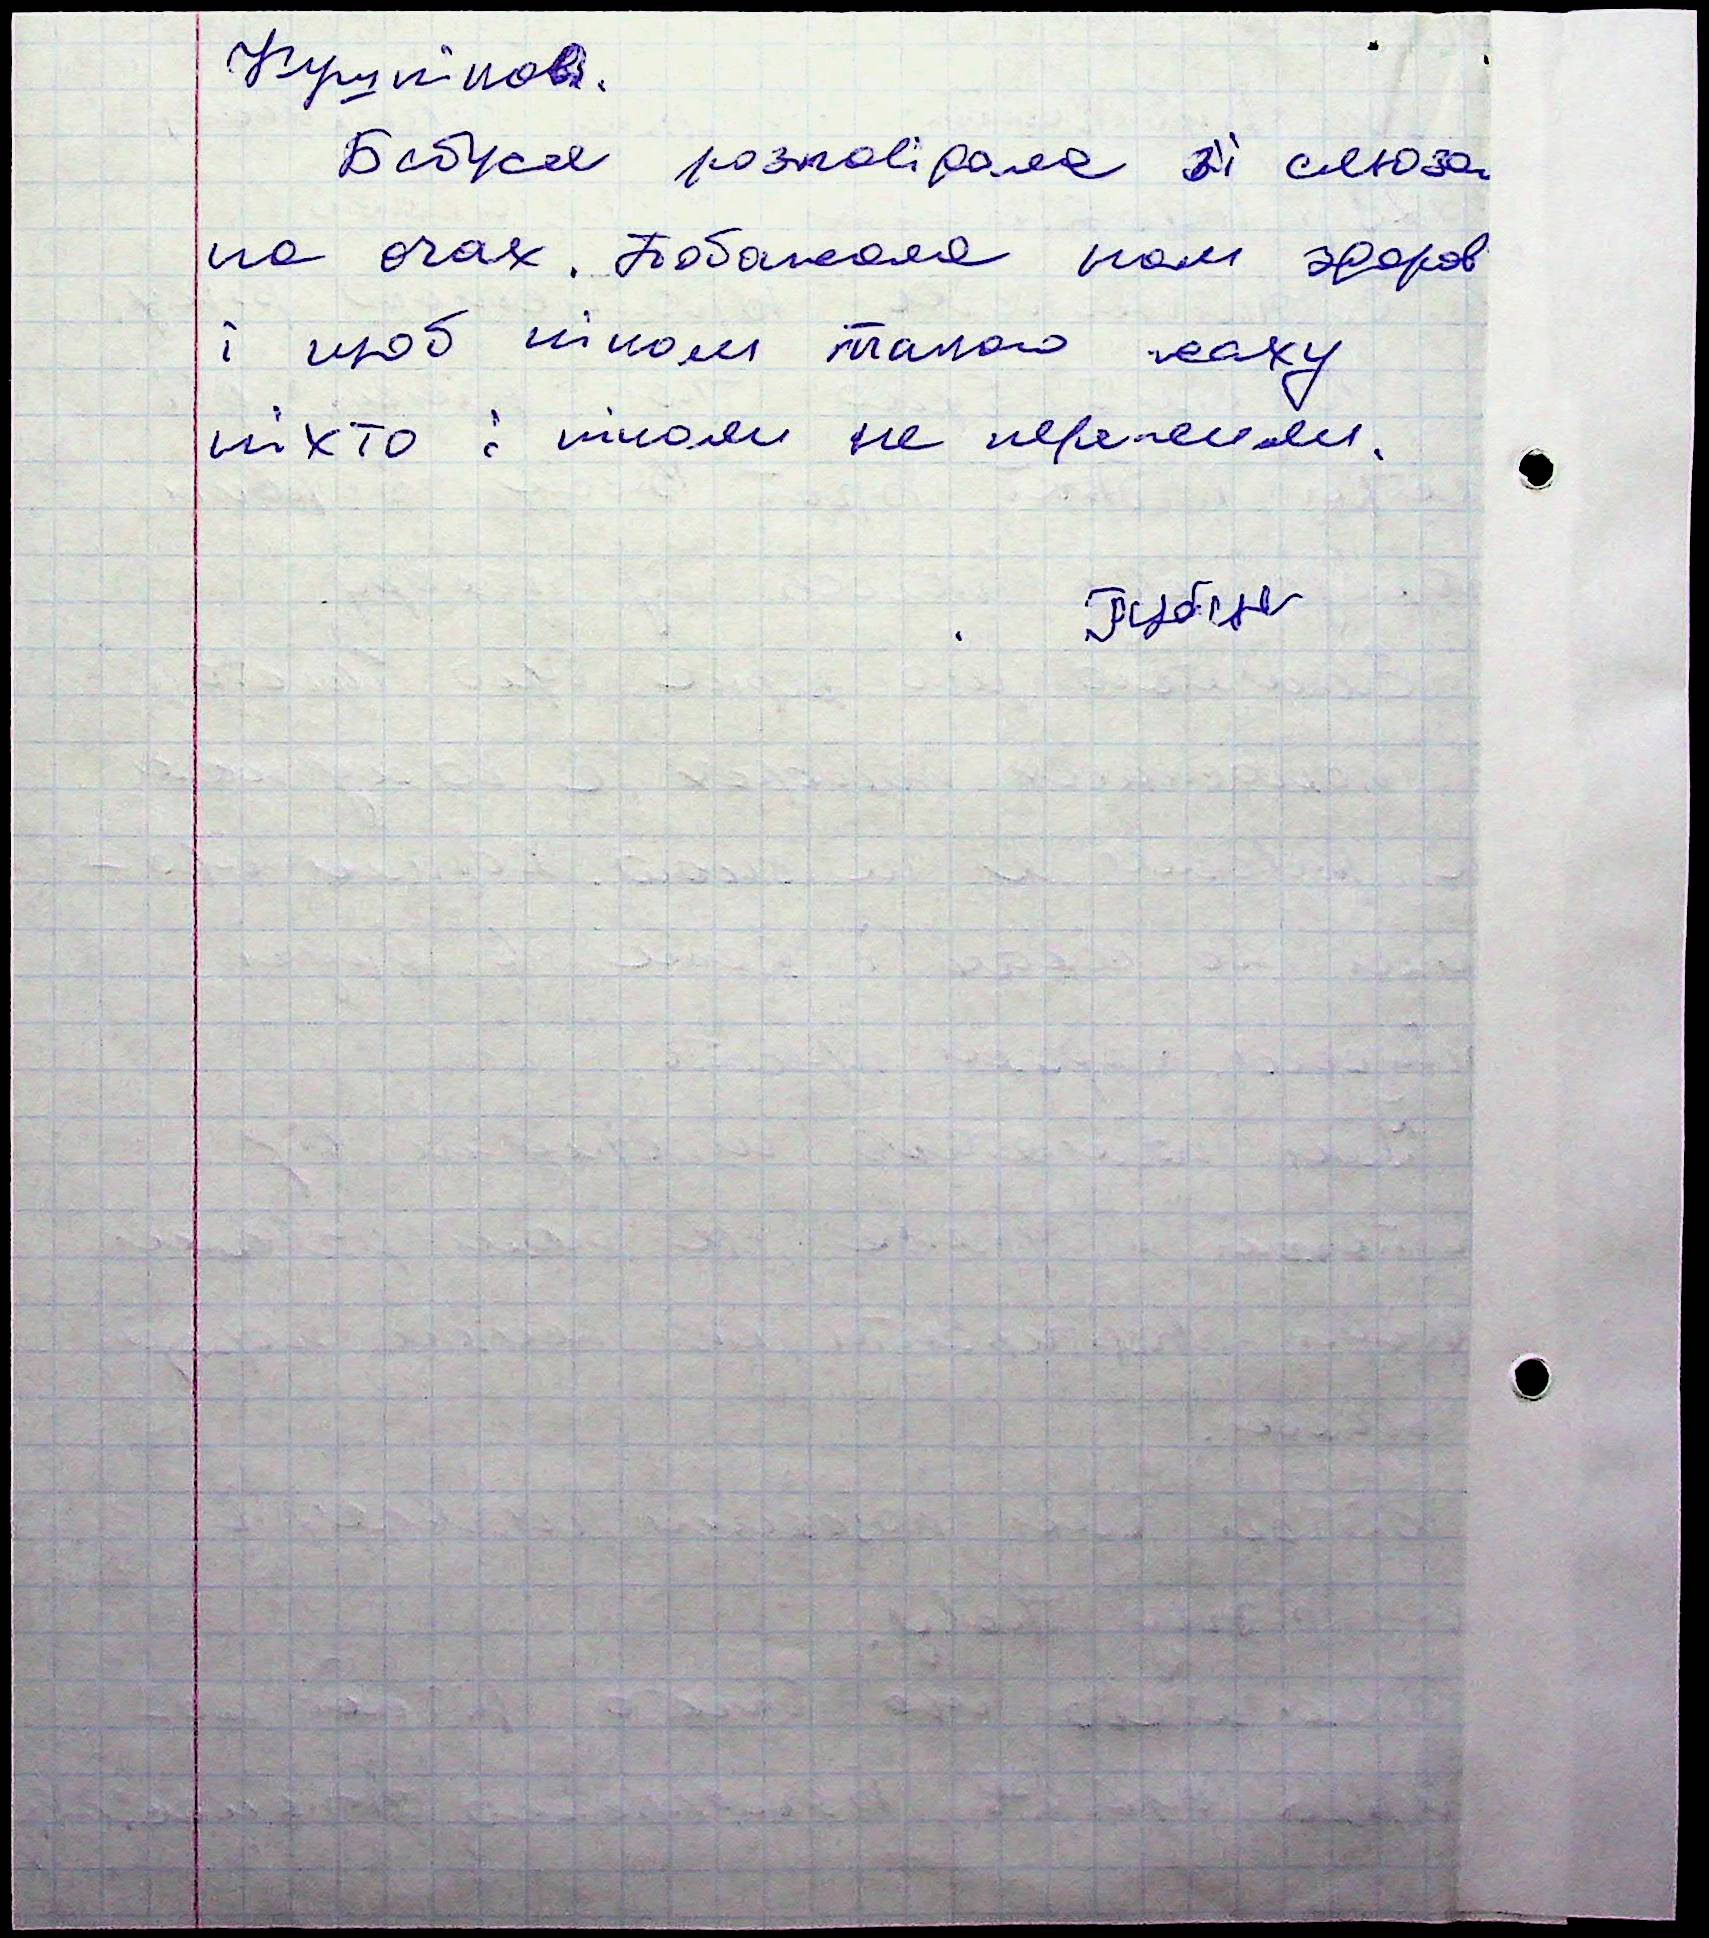 Бабуся розповідала зі сльоза
на очах. Побажала нам здоров
і щоб ніколи такого жаху
ніхто і ніколи не пережили.